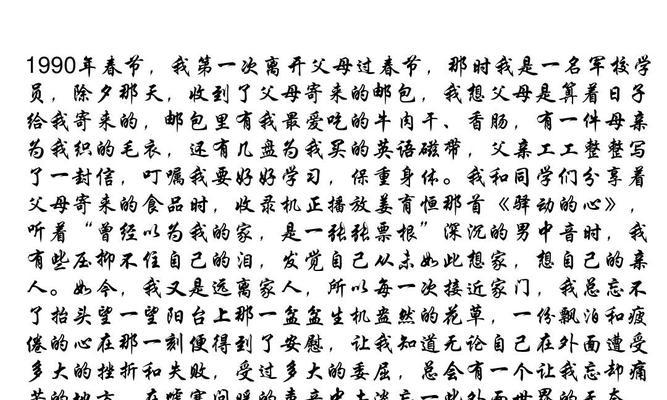 1990年春节，我第一次离开父母过春节，那时我是一名军校学
员，除夕那天，收到了父母寄来的邮包，我想父母是算着日子
给我寄来的，邮包里有我最爱吃的牛肉干、香肠，有一件母亲
为我织的毛衣，还有几盘为我买的英语磁带，父亲工工整整写
了一封信，叮嘱我要好好学习，保重身体。我和同学们分享着
父母寄来的食品时，收录机正播放姜育恒那首《驿动的心》，
听着“曾经以为我的家，是一张张票根”深沉的男中音时，我
有些压抑不住自己的泪，发觉自己从未如此想家，想自己的亲
人。如今，我又是远离家人，所以每一次接近家门，我总忘不
了抬头望一望阳台上那一盆盆生机盎然的花草，一份飘泊和疲
倦的心在那一刻便得到了安慰，让我知道无论自己在外面遭受
多大的挫折和失败，受过多大的委屈，总会有一个让我忘却痛